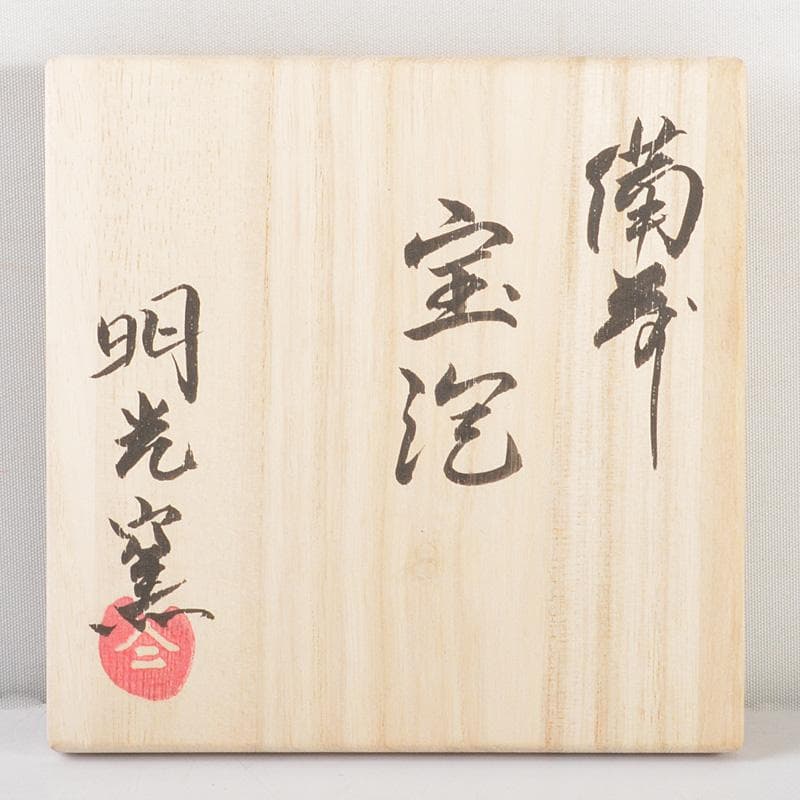 備前
宝瓶
明光窯